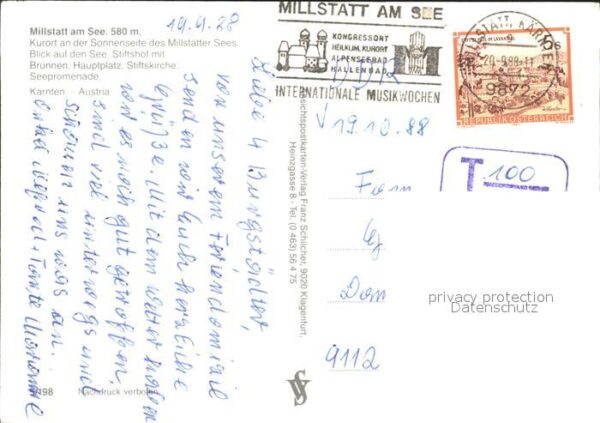 19.9.28
Millstatt am See. 580 m.
Kurort an der Sonnenseite des Millstätter Sees
Blick auf den See. Stiftshof mit
Brunnen, Hauptplatz, Stiftskirche,
Seepromenade
Kärnten - Austria
Liebe 4 Burgstädter,
von unserem Feriendomizil
senden wir Euch herzliche
Grüße. Mit dem Wetter haben
wir es noch gut getroffen,
sind viel unterwegs und
schauen uns was an.
Onkel + Tante Marianne
498 Nachdruck verboten
Ansichtspostkarten-Verlag Franz Schilcher, 9020 Klagenfurt,
Heinzgasse 8 - Tel. (0 463) 56 4 75
MILLSTATT AM SEE
KONGRESSORT
HEILKLIM. KURORT
ALPENSEEBAD
HALLENBAD
INTERNATIONALE MUSIKWOCHEN
MILLSTATT, KÄRNTEN
20.-9.88-11
9872
S 6
REPUBLIK ÖSTERREICH
DDR
19.10.88
T 100
Fam
Don
9112
privacy protection
Datenschutz